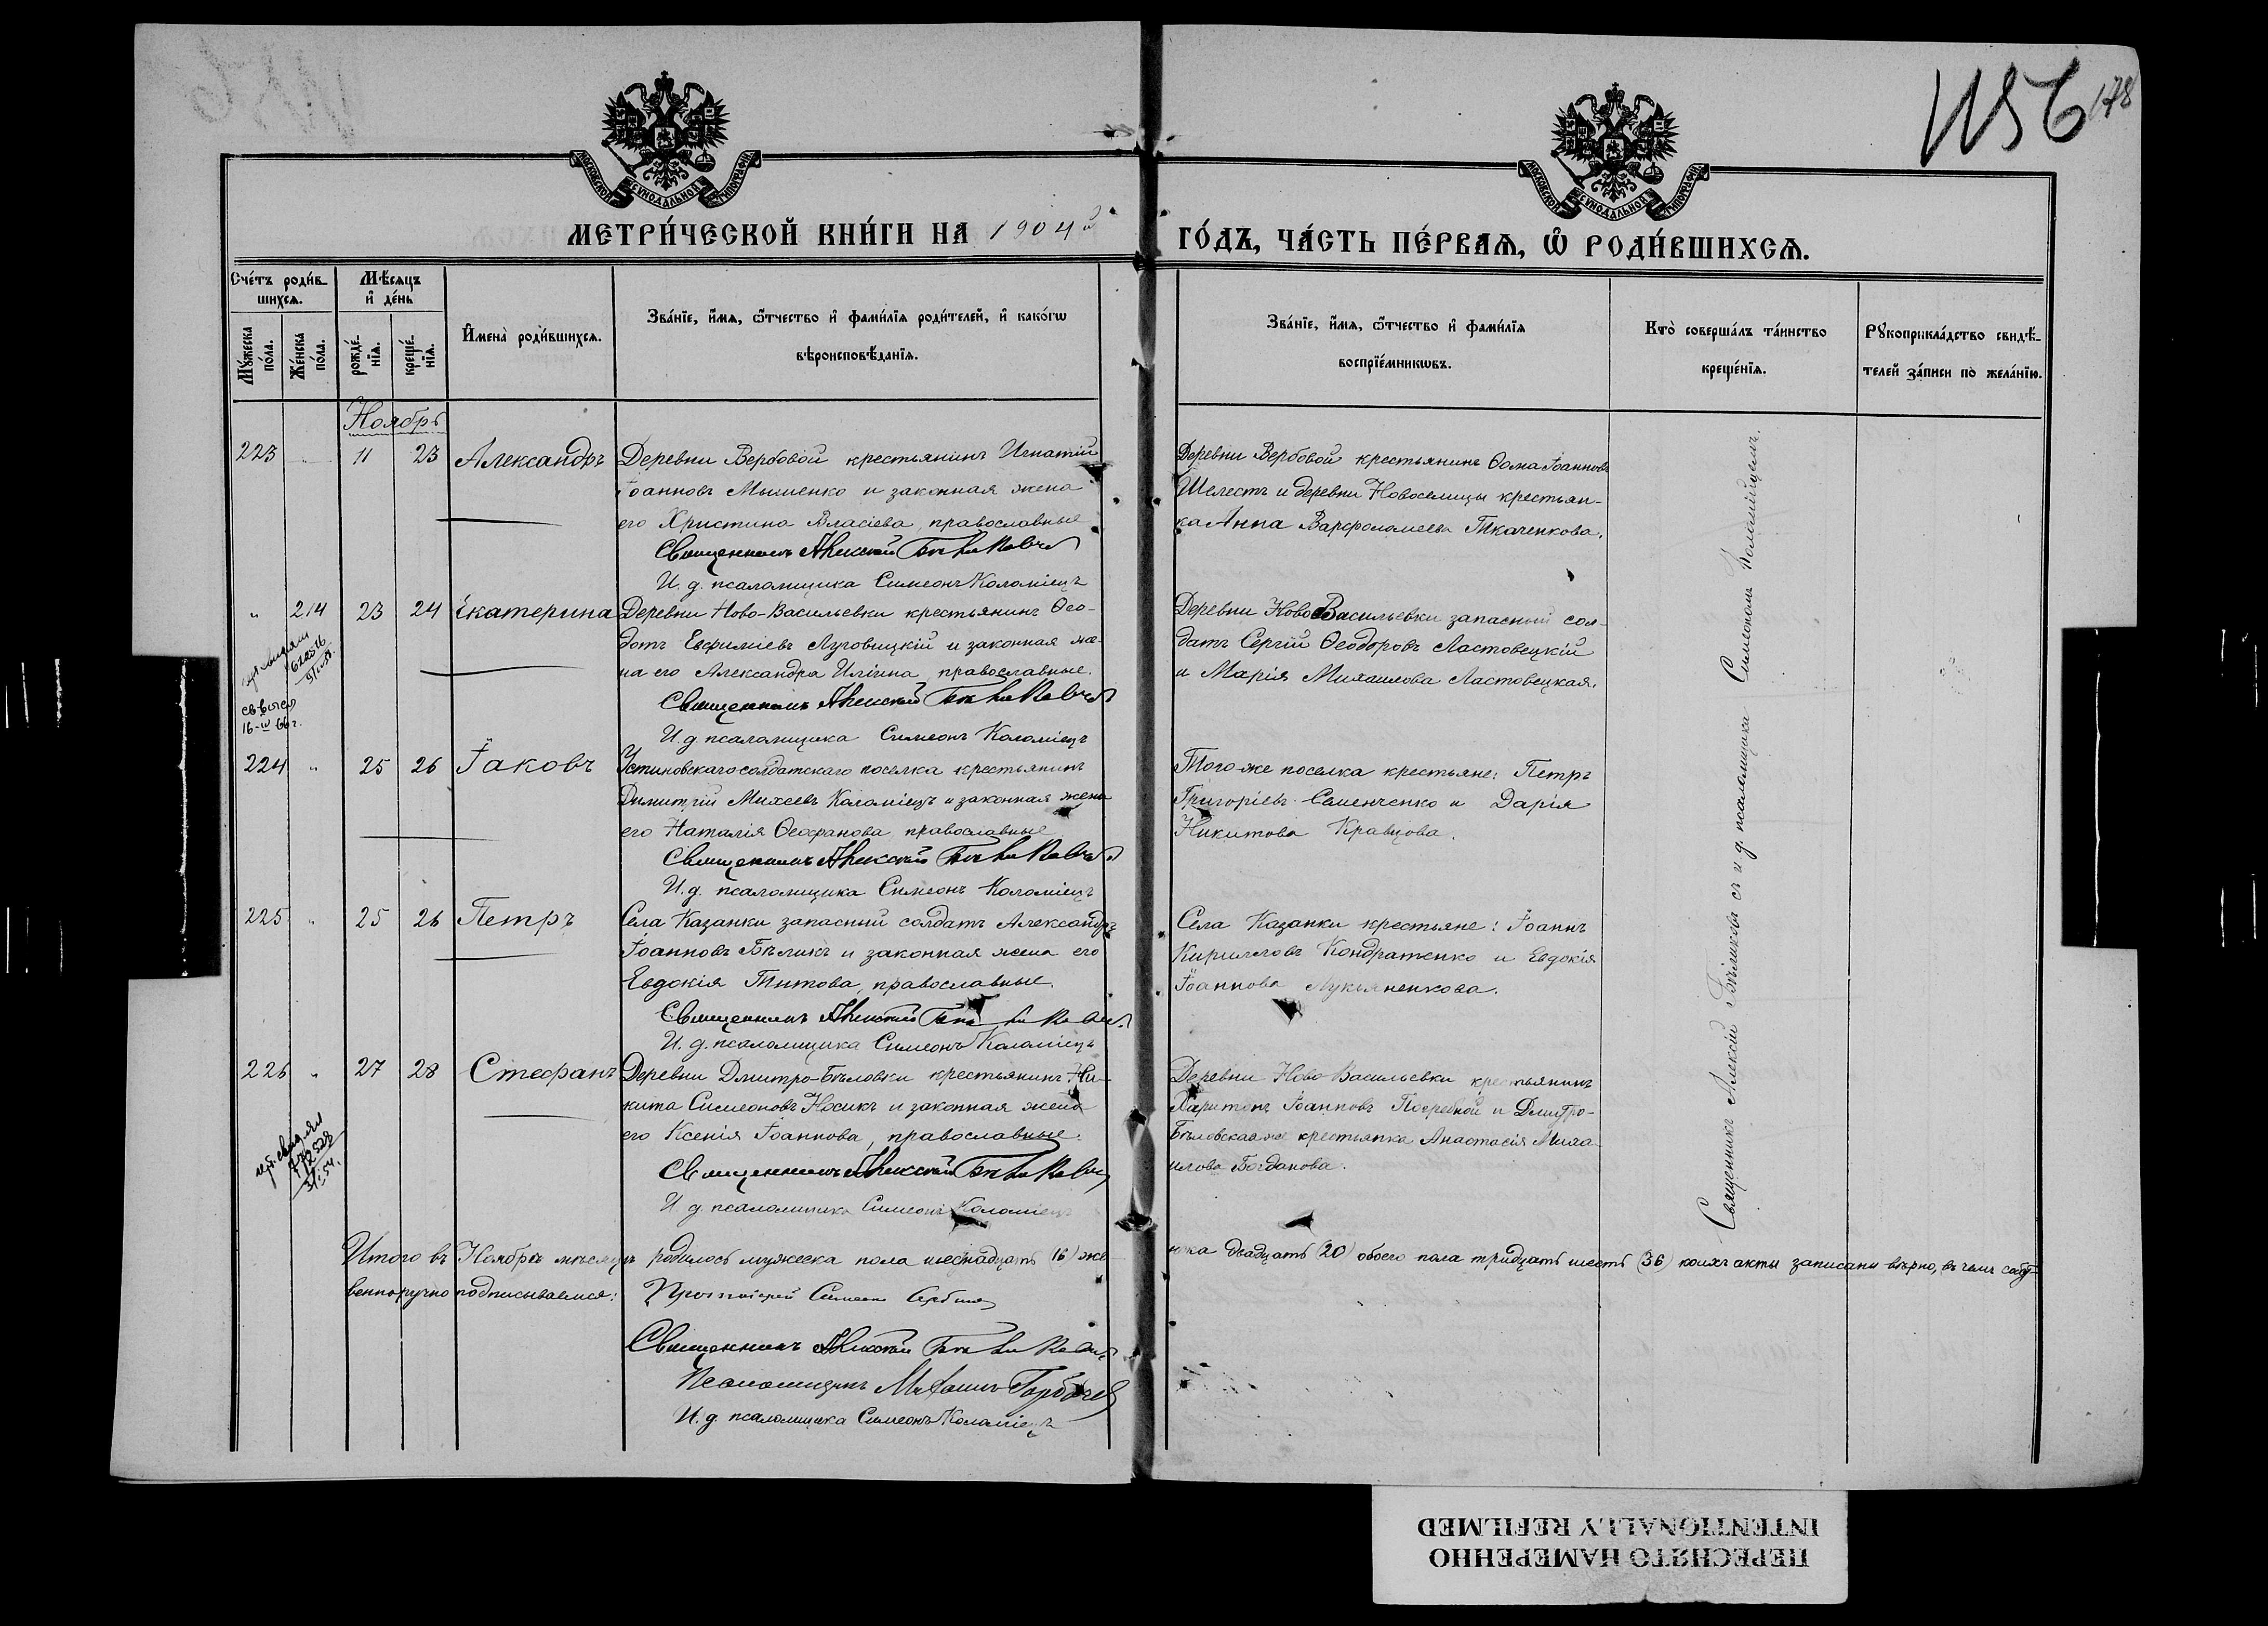 1156 178
МОСКОВСКОЙ СѴНОДАЛЬНОЙ ТИПОГРАФІИ
МОСКОВСКОЙ СѴНОДАЛЬНОЙ ТИПОГРАФІИ
МЕТРИ́ЧЕСКОЙ КНИ́ГИ НА 1904й
ГО́ДЪ, ЧА́СТЬ ПЕ́РВАѦ, Ѡ РОДИ́ВШИХСѦ.
Сче́тъ роди́в-
шихсѧ.
Мꙋ́жеска по́ла.
Же́нска по́ла.
Мѣ́сѧцъ
и де́нь
рожде́-
нїѧ.
креще́-
нїѧ.
Имена̀ роди́вшихсѧ.
Зва́нїе, и́мѧ, ѻ́тчество и фами́лїѧ роди́телей, и како́гѡ
вѣроисповѣ́данїѧ.
Зва́нїе, и́мѧ, ѻ́тчество и фами́лїѧ
воспрїе́мникѡвъ.
Кто̀ соверша́лъ та́инство
креще́нїѧ.
Рꙋкоприкла́дство свидѣ́-
телей за́писи по жела́нїю.
Ноябрь
223 11 23 Александръ
Деревни Вербовой крестьянинъ Игнатій
Іоанновъ Мышенко и законная жена
его Христина Власіева, православные
Священникъ Алексій Бѣликовъ
И. д. псаломщика Симеонъ Коломіецъ
Деревни Вербовой крестьянинъ Ѳома Іоанновъ
Шелестъ и деревни Новоселицы крестьян-
ка Анна Варѳоломеева Ткаченкова.
" 214 23 24 Екатерина
Деревни Ново-Васильевки крестьянинъ Ѳео-
дотъ Евѳиміевъ Луговицкій и законная же-
на его Александра Иліина, православные.
Священникъ Алексій Бѣликовъ
И. д. псаломщика Симеонъ Коломіецъ
Деревни Ново Васильевки запасный сол-
датъ Сергій Ѳеодоровъ Ластовецкій
и Марія Михаилова Ластовецкая.
16-IV 66 г.
224 " 25 26 Іаковъ
Устиновскаго солдатскаго поселка крестьянинъ
Димитрій Михеевъ Коломіецъ и законная жена
его Наталія Ѳеофанова, православные
Священникъ Алексій Бѣликовъ
И. д. псаломщика Симеонъ Коломіецъ
Того же поселка крестьяне: Петръ
Григоріевъ Семенченко и Дарія
Никитова Кравцова.
225 " 25 26 Петръ
Села Казанки запасный солдатъ Александръ
Іоанновъ Бѣликъ и законная жена его
Евдокія Титова, православные.
Священникъ Алексій Бѣликовъ
И. д. псаломщика Симеонъ Коломіецъ
Села Казанки крестьяне: Іоаннъ
Кирилловъ Кондратенко и Евдокія
Іоаннова Лукьяненкова.
226 " 27 28 Стефанъ
Деревни Дмитро-Бѣловки крестьянинъ Ни-
кита Симеоновъ Носикъ и законная жена
его Ксенія Іоаннова, православные.
Священникъ Алексій Бѣликовъ
И. д. псаломщика Симеонъ Коломіецъ
Деревни Ново Васильевки крестьянинъ
Харитонъ Іоанновъ Погребной и Дмитро-
Бѣловская же крестьянка Анастасія Миха-
илова Богданова.
Священникъ Алексій Бѣликовъ съ и. д. псаломщика Симеономъ Коломійцемъ.
Итого въ Ноябрѣ мѣсяцѣ родилось мужеска пола шестнадцать (16) же-
нска двадцать (20) обоего пола тридцать шесть (36) коихъ акты записаны вѣрно, въ чемъ собст-
венноручно подписываемся: Протоіерей Симеонъ
Священникъ Алексій Бѣликовъ
Псаломщикъ Михаилъ Горбачев
И. д. псаломщика Симеонъ Коломіецъ
ПЕРЕСНЯТО НАМЕРЕННО
INTENTIONALLY REFILMED